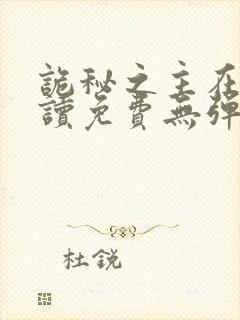 詭秘之主在
讀免費無彈
杜銳